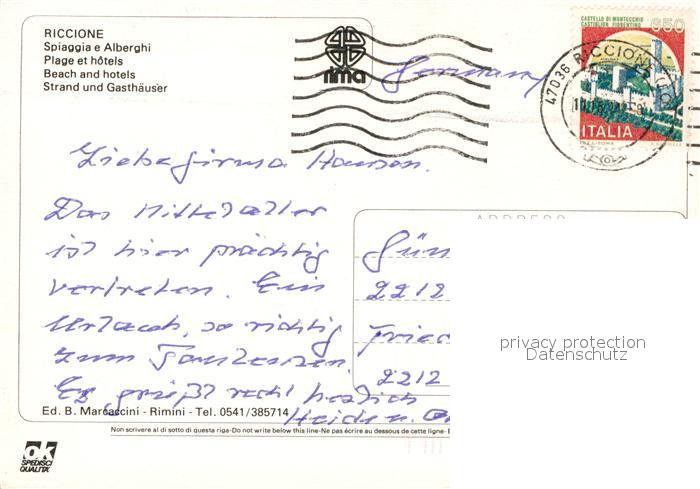 RICCIONE
Spiaggia e Alberghi
Plage et hôtels
Beach and hotels
Strand und Gasthäuser
rima
Germany
CASTELLO DI MONTECCHIO
CASTIGLION FIORENTINO
650
47036 RICCIONE
ITALIA
Liebe Firma Hansen.
Das Mittelalter
ist hier prächtig
vertreten. Ein
Urlaub, so richtig
zum Faulenzen.
Es grüßt recht herzlich
Heide u.
ADDRESS
Gün
2212
Fried
2212
privacy protection
Datenschutz
Ed. B. Marcaccini - Rimini - Tel. 0541/385714
Non scrivere al di sotto di questa riga-Do not write below this line-Ne pas écrire au dessous de cette ligne-
ok
SPEDISCI
QUALITA'